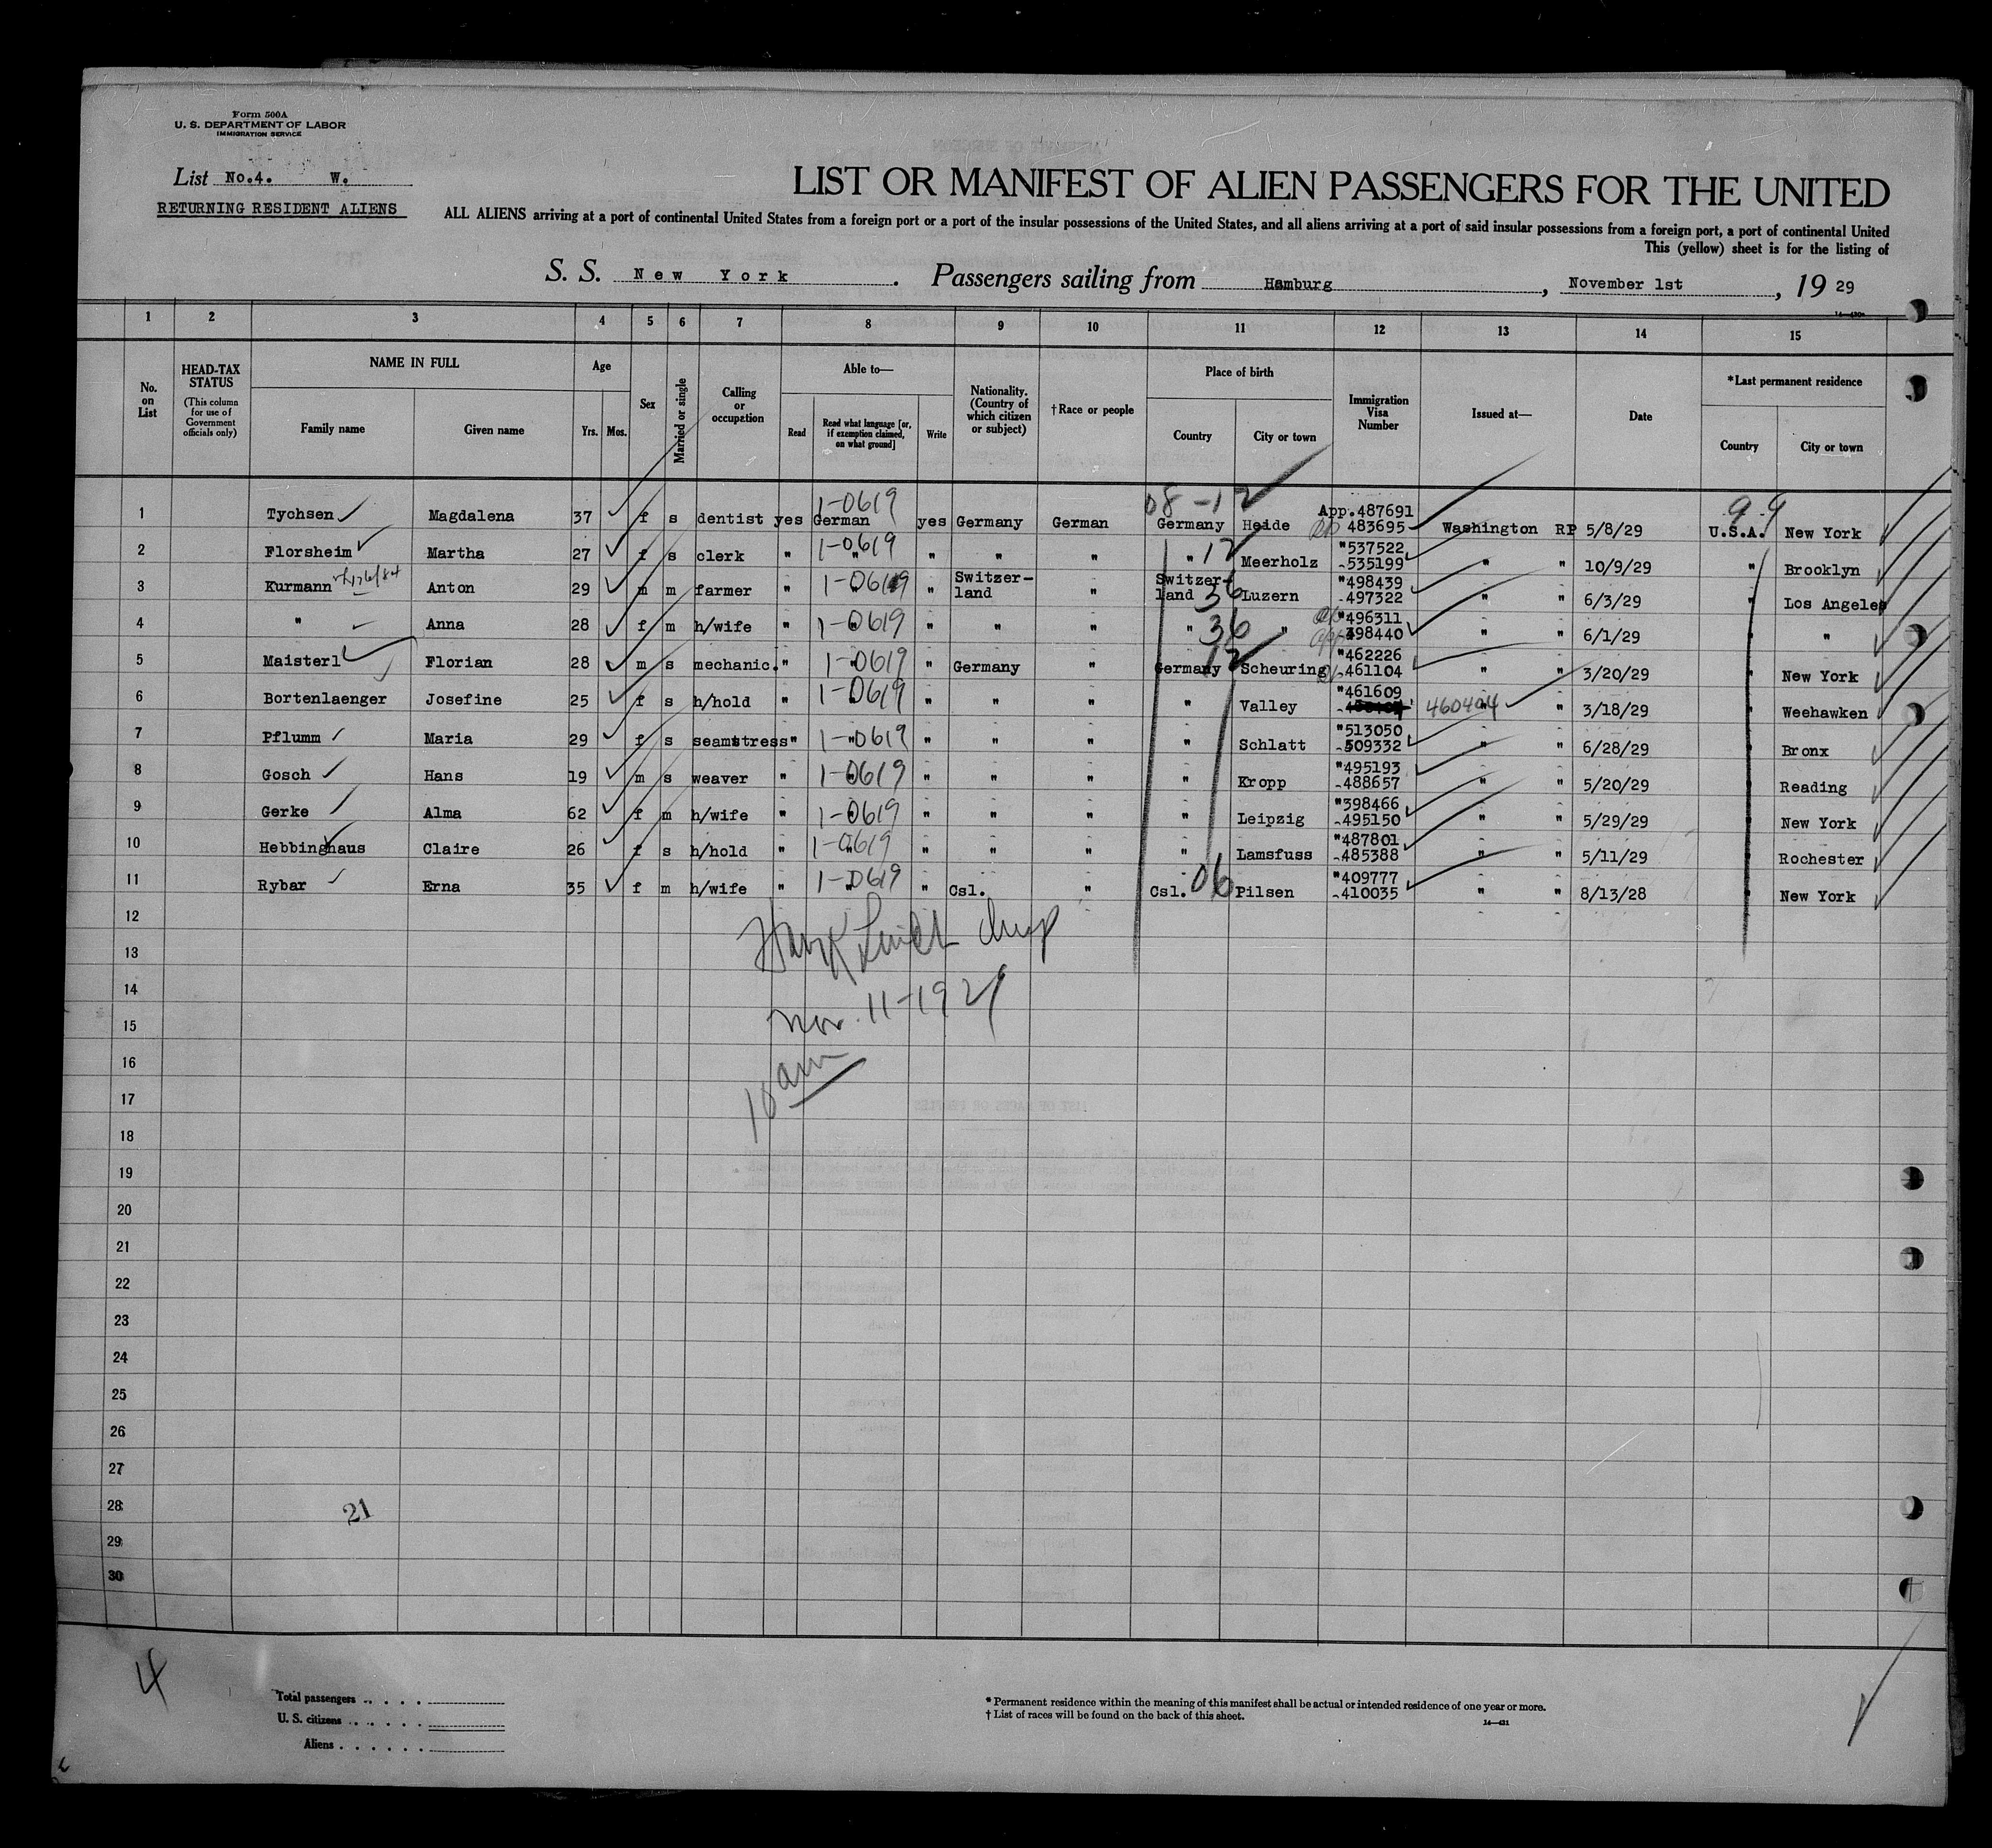 Form 500A
U. S. DEPARTMENT OF LABOR
IMMIGRATION SERVICE
List No.4. W.
RETURNING RESIDENT ALIENS
LIST OR MANIFEST OF ALIEN PASSENGERS FOR THE UNITED
ALL ALIENS arriving at a port of continental United States from a foreign port or a port of the insular possessions of the United States, and all aliens arriving at a port of said insular possessions from a foreign port, a port of continental United
This (yellow) sheet is for the listing of
S. S. New York. Passengers sailing from Hamburg, November 1st, 19 29
1 2 3 4 5 6 7 8 9 10 11 12 13 14 15
No. on List
HEAD-TAX STATUS
(This column for use of Government officials only)
NAME IN FULL
Family name Given name
Age
Yrs. Mos.
Sex
Married or single
Calling or occupation
Able to—
Read
Read what language [or, if exemption claimed, on what ground]
Write
Nationality. (Country of which citizen or subject)
†Race or people
Place of birth
Country City or town
Immigration Visa Number
Issued at—
Date
*Last permanent residence
Country City or town
08 -12 99
1 Tychsen Magdalena 37 f s dentist yes German 1-0619 yes Germany German Germany Heide App.487691 RP 483695 Washington RP 5/8/29 U.S.A. New York
2 Florsheim Martha 27 f s clerk " " 1-0619 " " " " 12 Meerholz "537522 -535199 " " 10/9/29 " Brooklyn
3 Kurmann Anton 29 m m farmer " " 1-0619 " Switzer-land " Switzer-land 36 Luzern "498439 -497322 " " 6/3/29 " Los Angeles
4 " Anna 28 f m h/wife " " 1-0619 " " " " 36 " "496311 -398440 " " 6/1/29 " "
5 Maisterl Florian 28 m s mechanic. " " 1-0619 " Germany " Germany 12 Scheuring "462226 -461104 " " 3/20/29 " New York
6 Bortenlaenger Josefine 25 f s h/hold " " 1-0619 " " " " Valley "461609 460404 " " 3/18/29 " Weehawken
7 Pflumm Maria 29 f s seamstress " " 1-0619 " " " " Schlatt "513050 -509332 " " 6/28/29 " Bronx
8 Gosch Hans 19 m s weaver " " 1-0619 " " " " Kropp "495193 -488657 " " 5/20/29 " Reading
9 Gerke Alma 62 f m h/wife " " 1-0619 " " " " Leipzig "398466 -495150 " " 5/29/29 " New York
10 Hebbinghaus Claire 26 f s h/hold " " 1-0619 " " " " Lamsfuss "487801 -485388 " " 5/11/29 " Rochester
11 Rybar Erna 35 f m h/wife " " 1-0619 " Csl. " Csl. 06 Pilsen "409777 -410035 " " 8/13/28 " New York
12
13
14
Nov. 11-1929
15
16
10 am
17
18
19
20
21
22
23
24
25
26
27
28
21
29
30
4
Total passengers
U. S. citizens
Aliens
* Permanent residence within the meaning of this manifest shall be actual or intended residence of one year or more.
† List of races will be found on the back of this sheet.
14—431